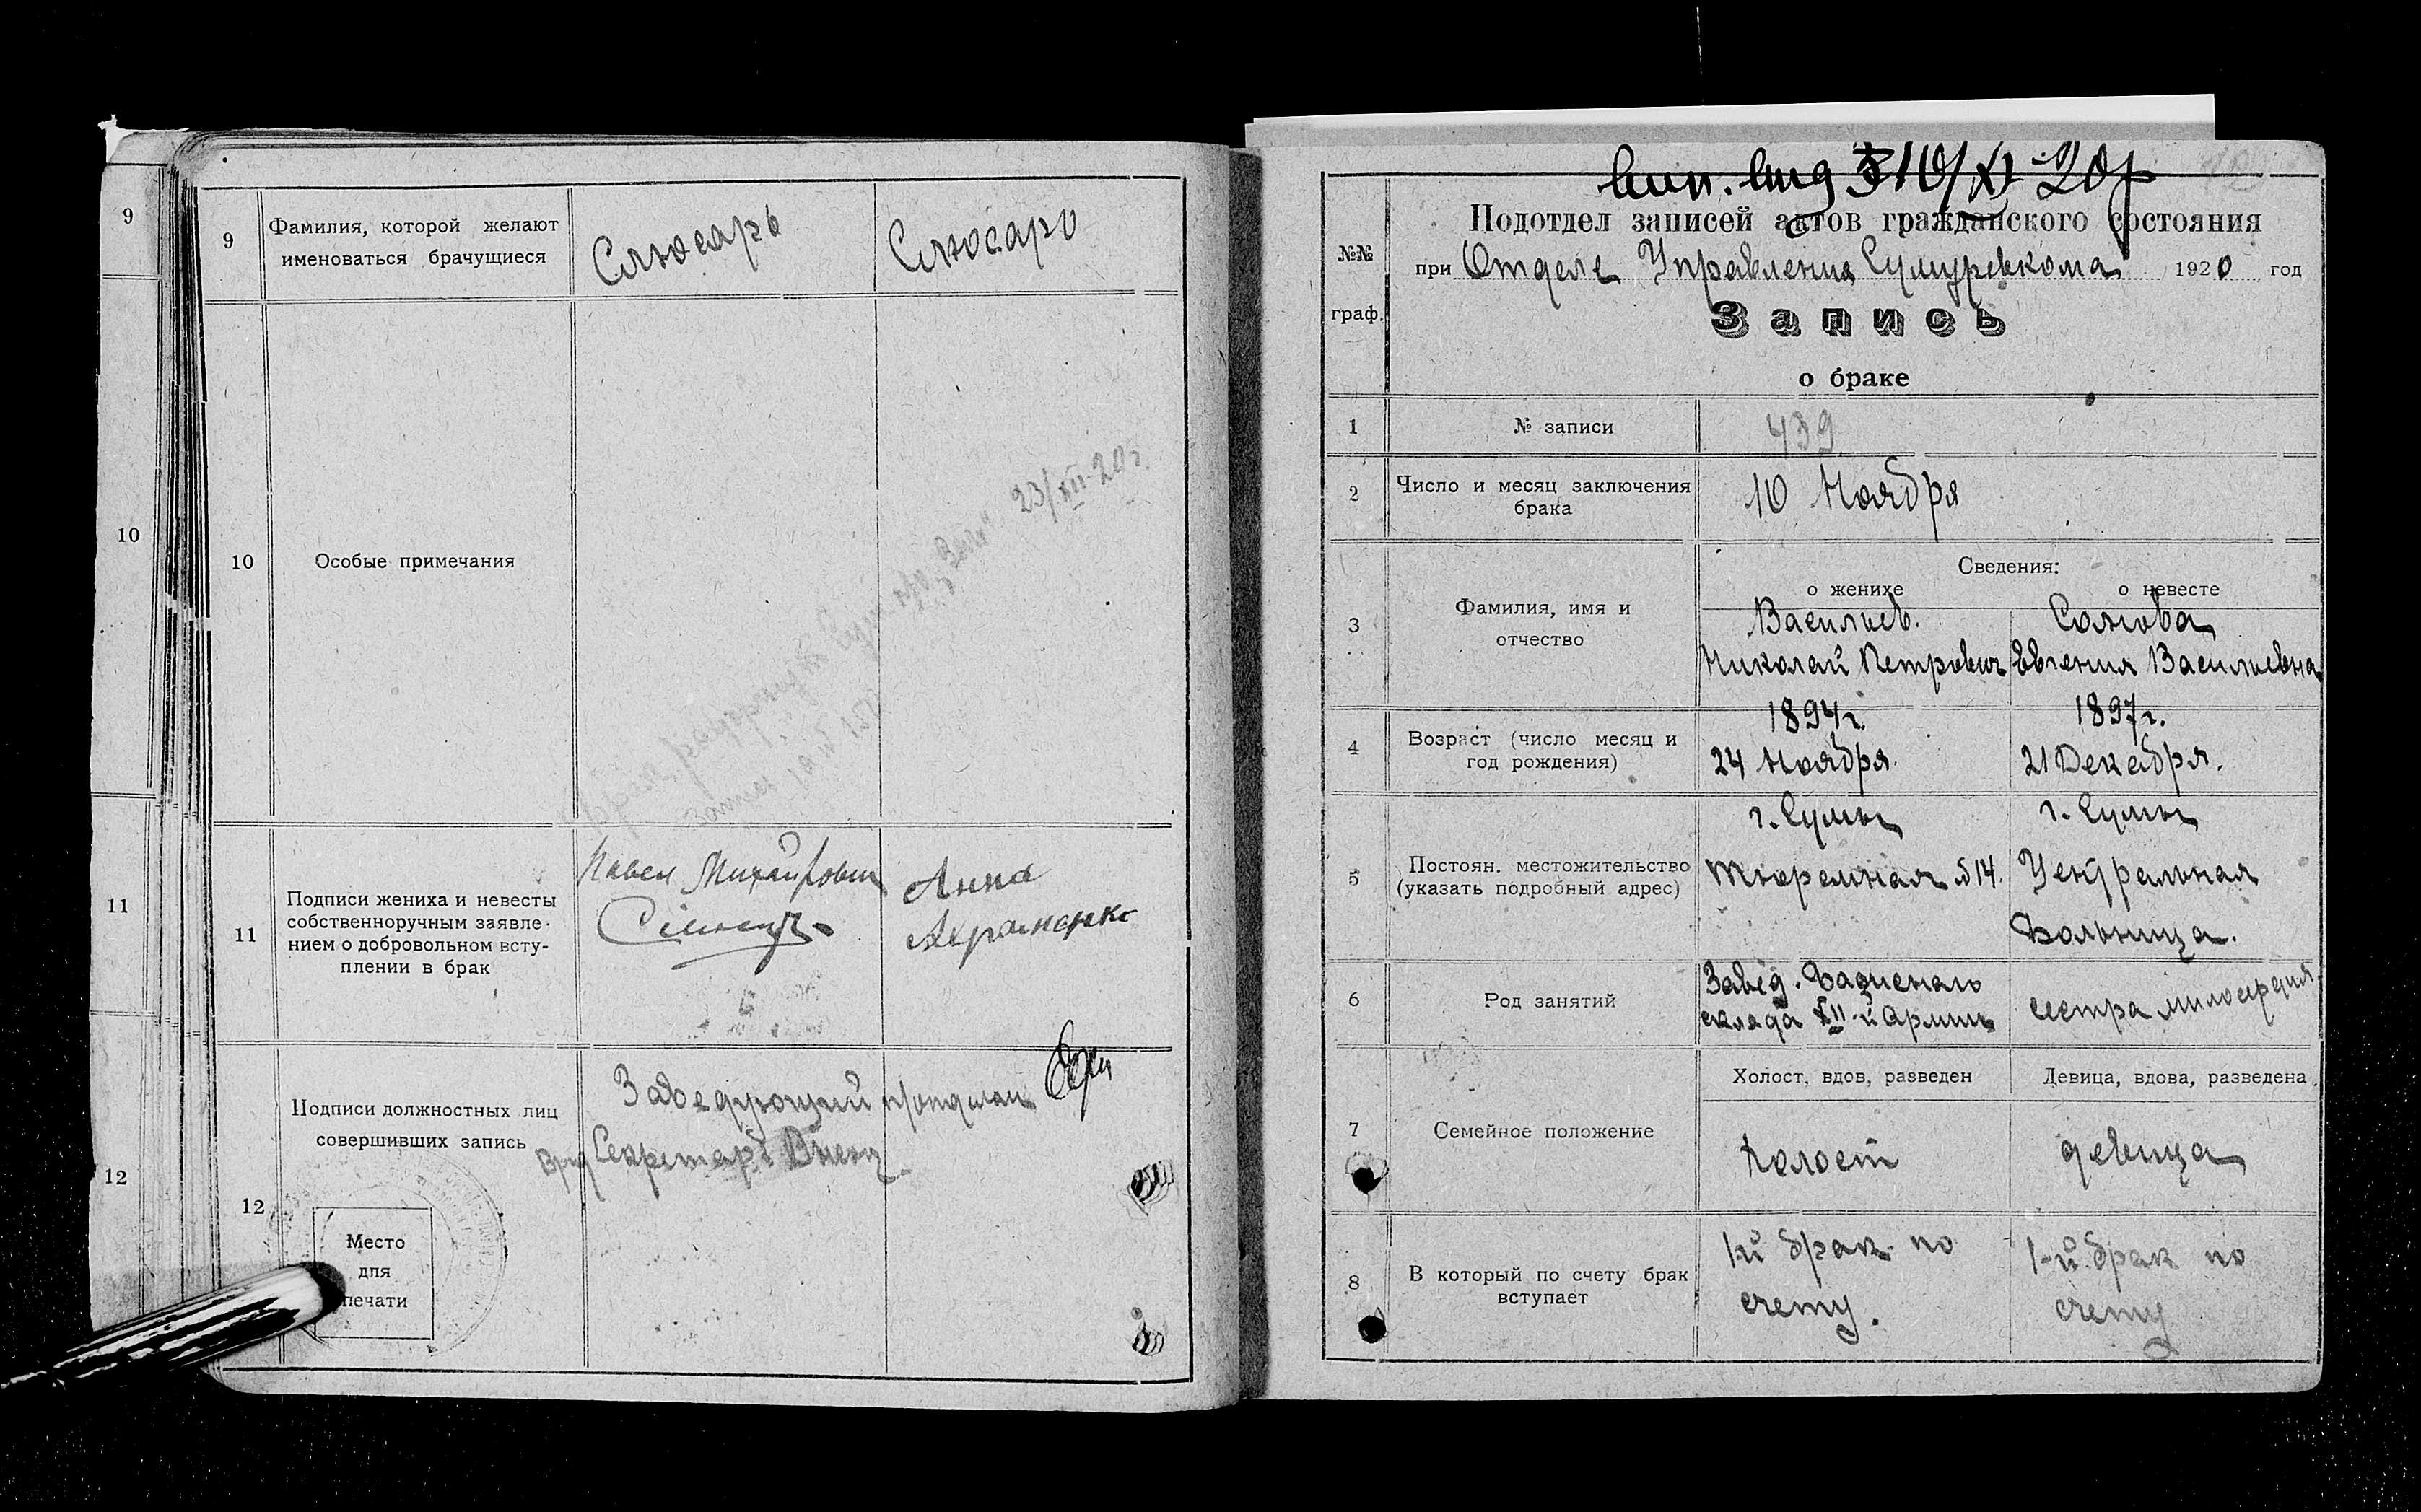 9
10
11
12
9
Фамилия, которой желают
именоваться брачущиеся
Слюсарь
Слюсарь
10
Особые примечания
23/XII-20 г.
11
Подписи жениха и невесты
собственноручным заявле-
нием о добровольном всту-
плении в брак
Павел
Анна
12
Подписи должностных лиц
совершивших запись
Заведующий п/отделом
Секретарь
Место
для
печати
10/XI-20 г
№№
граф.
Подотдел записей актов гражданского состояния
при Отделе Управления Сумуревкома 1920 год
Запись
о браке
1
№ записи
439
2
Число и месяц заключения
брака
10 Ноября
Сведения:
о женихе
о невесте
3
Фамилия, имя и
отчество
Васильев.
Николай Петрович
Евгения Васильевна
4
Возраст (число месяц и
год рождения)
1894 г.
24 Ноября.
1897 г.
21 Декабря.
5
Постоян. местожительство
(указать подробный адрес)
г. Сумы
Тюремная №14.
г. Сумы
Центральная
Больница.
6
Род занятий
Завед.
склада XII-й Армии
сестра милосердия.
7
Семейное положение
Холост, вдов, разведен
Девица, вдова, разведена
холост
девица
8
В который по счету брак
вступает
1-й брак по
счету.
1-й брак по
счету